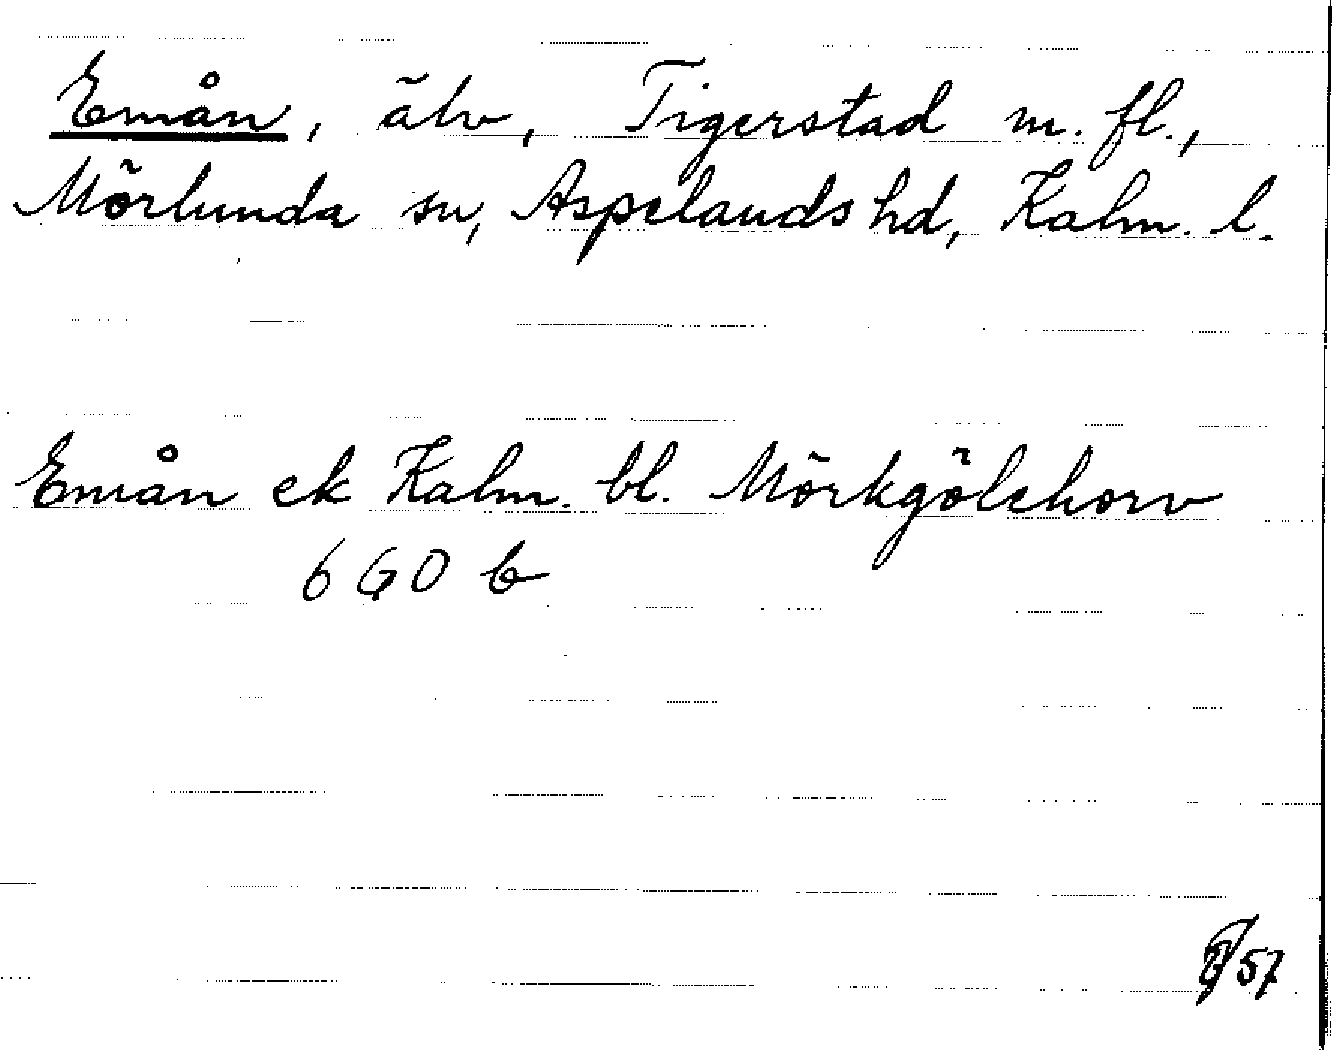 Emån, älv, Tigerstad m. fl.,
Mörlunda sn, Aspelands hd, Kalm. l.
Emån ek Kalm. bl. Mörkgölehorv
6 G O b
57